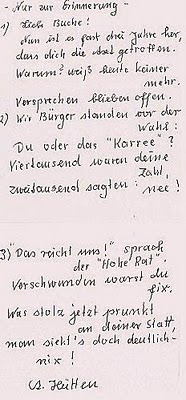 - Nur zur Erinnerung -
1) Liebe Buche!
Nun ist es fast drei Jahre her,
dass dich die Axt getroffen.
Warum? weiß heute keiner
mehr.
Versprechen blieben offen.
2) Wir Bürger standen vor der
Wahl:
Du oder das "Karree"?
Viertausend waren deine
Zahl,
zweitausend sagten: nee!
3) "Das reicht uns!" sprach
der "Hohe Rat".
Verschwunden warst du
fix.
Was stolz jetzt prunkt
an deiner Statt,
man sieht's doch deutlich-
nix!